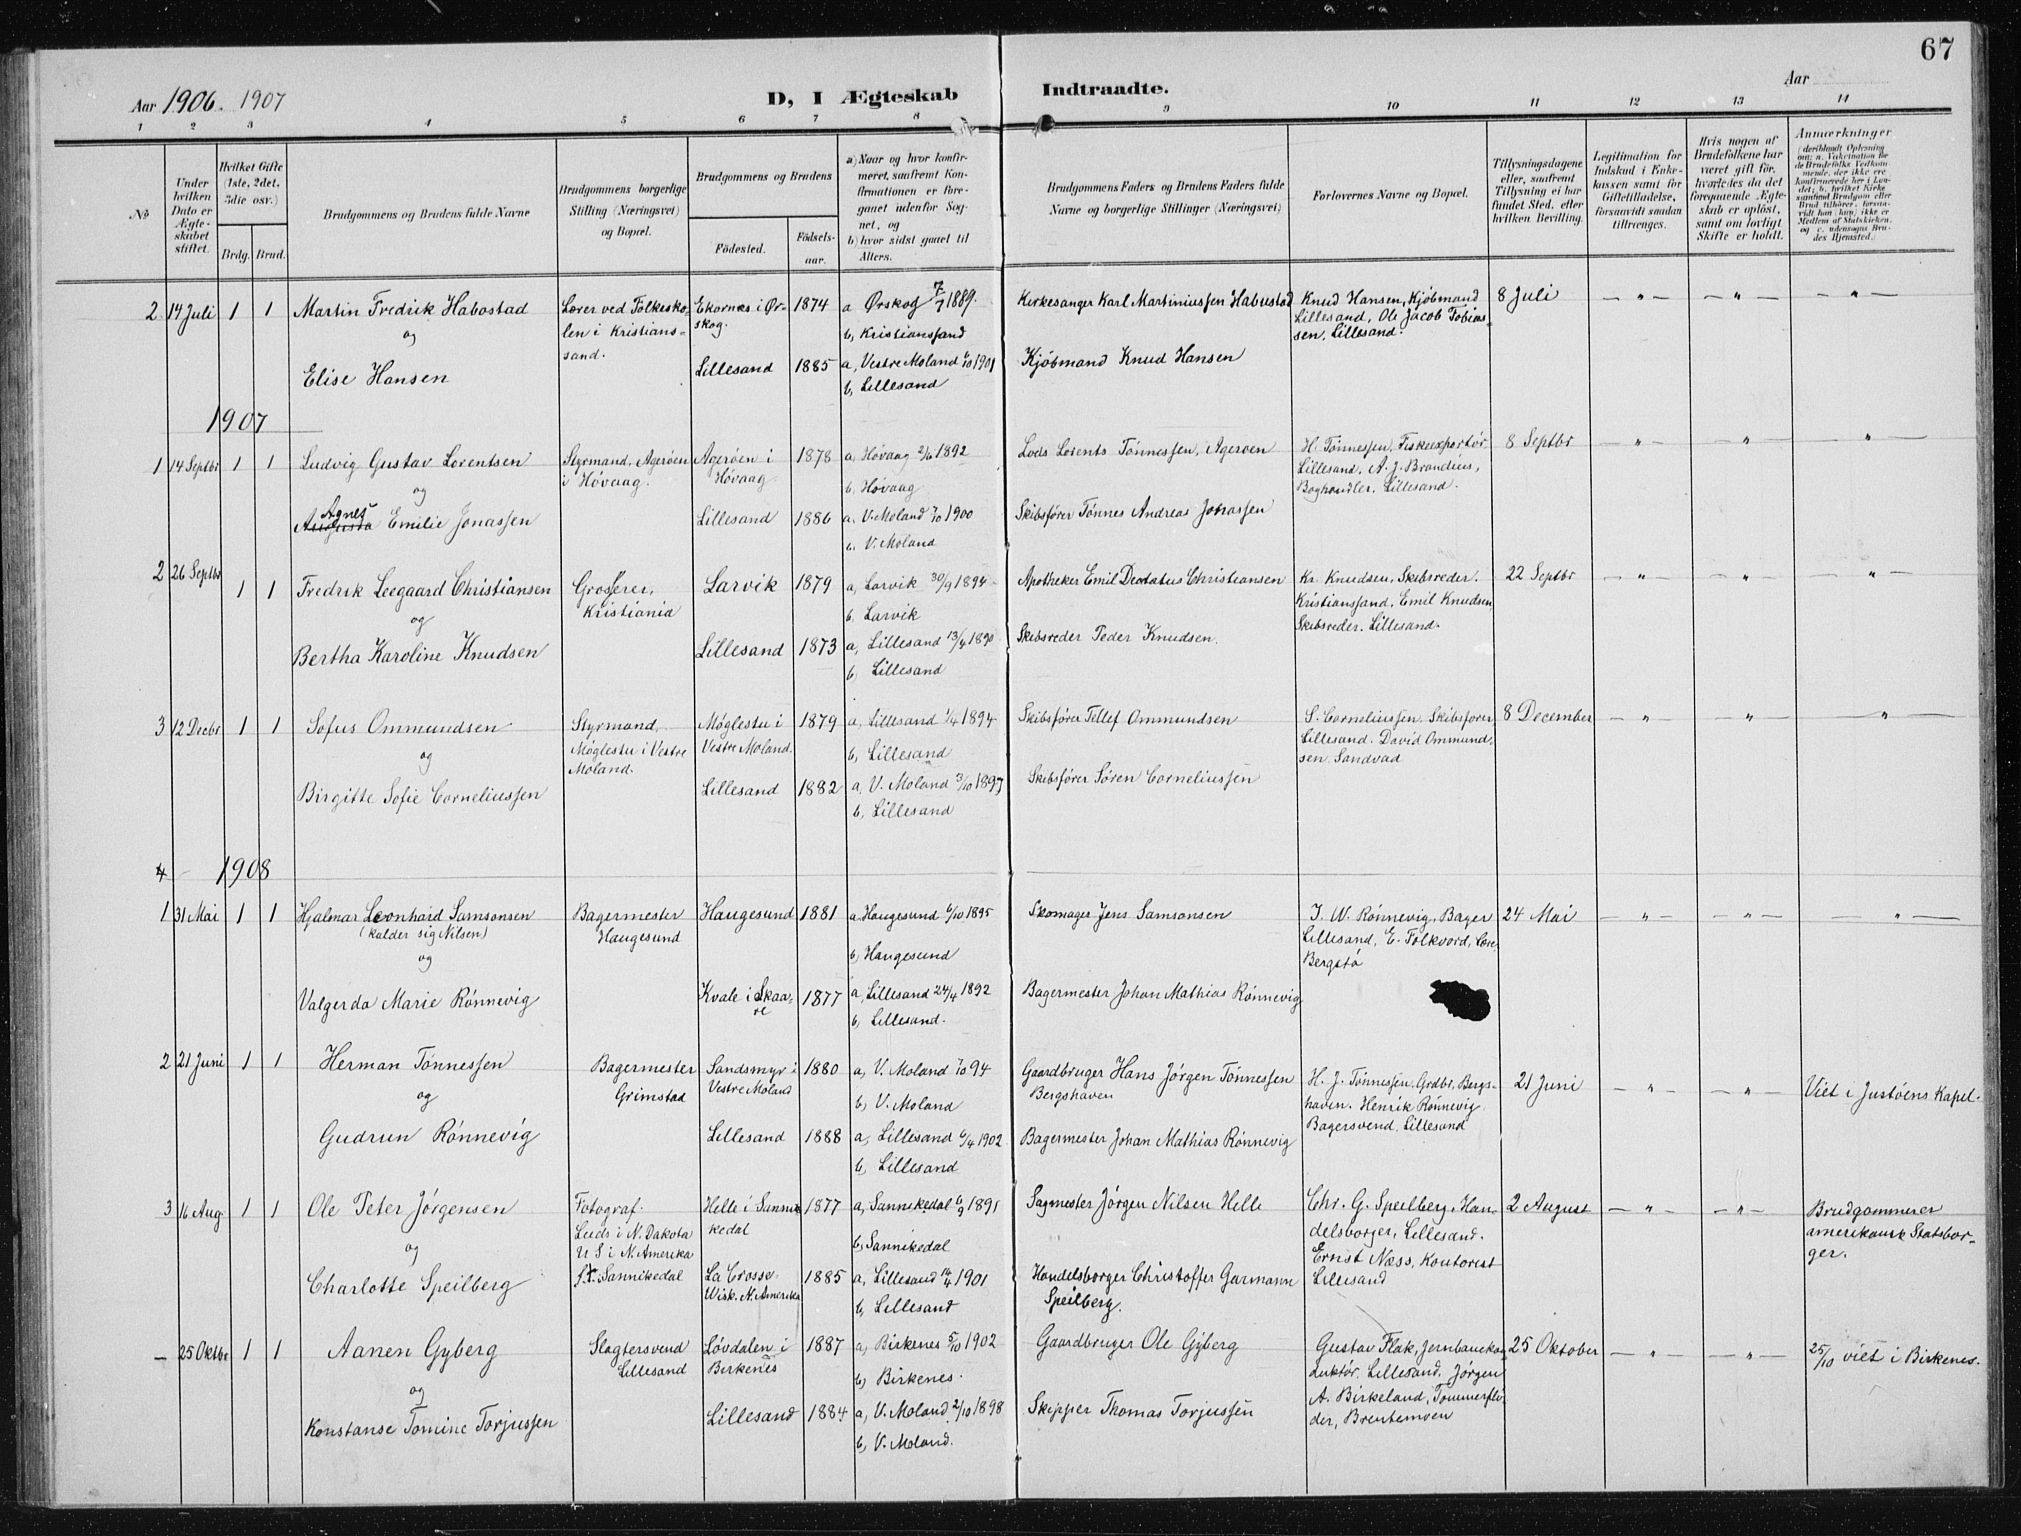 67
Aar 1906. 1907
D, I Ægteskab Indtraadte.
Aar
1 2 3 4 5 6 7 8 9 10 11 12 13 14
No
Under hvilken Dato er Ægteskabet stiftet.
Hvilket Gifte (1ste, 2det, 3die osv.)
Brdg. Brud.
Brudgommens og Brudens fulde Navne
Brudgommens borgerlige Stilling (Næringsvei) og Bopæl.
Brudgommens og Brudens
Fødested.
Fødselsaar.
a) Naar og hvor konfirmeret, saafremt Konfirmationen er foregaaet udenfor Sognet, og
b) hvor sidst gaaet til Alters.
Brudgommens Faders og Brudens Faders fulde Navne og borgerlige Stillinger (Næringsvei)
Forlovernes Navne og Bopæl.
Tillysningsdagene eller, saafremt Tillysning ei har fundet Sted, efter hvilken Bevilling.
Legitimation for Indskud i Enkekassen samt for Giftetilladelse, forsaavidt saadan tiltrænges.
Hvis nogen af Brudefolkene har været gift før, hvorledes da det foregaaende Ægteskab er opløst, samt om lovligt Skifte er holdt.
Anmærkninger
2 14 Juli 1 1 Martin Fredrik Habostad
og
Elise Hansen
Lærer ved Folkeskolen i Kristianssand.
Ekornes i Ørskog. 1874 a Ørskog 7/7 1889.
b, Kristianssand
Lillesand 1885 a, Vestre Moland 6/10 1901
b, Lillesand
Kirkesanger Karl Martiniussen Habostad
Kjøbmand Knud Hansen
Knud Hansen, Kjøbmand
Lillesand, Ole Jacob Tobiassen, Lillesand.
8 Juli — " — — " — — " —
1907
1 14 Septbr 1 1 Ludvig Gustav Lorentsen
og
Agnes Emilie Jonassen
Styrmand, Agerøen
i Høvaag.
Agerøen i Høvaag 1878 a, Høvaag 2/6 1892
b, Høvaag
Lillesand 1886 a, V. Moland 7/10 1900
b, V. Moland
Lods Lorents Tønnessen, Agerøen
Skibsfører Tønnes Andreas Jonassen
H. Tønnessen, Fiskeexportør
Lillesand, A. J. Brandius,
Boghandler, Lillesand.
8 Septbr — " — — " — — " —
2 26 Septbr 1 1 Fredrik Leegaard Christiansen
og
Bertha Karoline Knudsen
Grosserer,
Kristiania
Larvik 1879 a, Larvik 30/9 1894
b. Larvik
Lillesand 1873 a, Lillesand 13/4 1890
b, Lillesand
Apotheker Emil Deodatus Christiansen
Skibsreder Peder Knudsen.
Kr. Knudsen, Skibsreder.
Kristianssand, Emil Knudsen
Skibsreder. Lillesand.
22 Septbr — " — — " — — " —
3 12 Decbr 1 1 Sofus Ommundsen
og
Birgitte Sofie Corneliussen
Styrmand,
Møglestu i Vestre
Moland.
Møglestu i
Vestre Moland. 1879 a, Lillesand 1/4 1894
b, Lillesand
Lillesand 1882 a, V. Moland 3/10 1897
b, Lillesand
Skibsfører Tellef Ommundsen
Skibsfører Søren Corneliussen
S. Corneliussen, Skibsfører
Lillesand. David Ommundsen Sandvad
8 December — " — — " — — " —
4 1908
1 31 Mai 1 1 Hjalmar Leonhard Samsonsen
(kalder sig Nilsen)
og
Valgerda Marie Rønnevig
Bagermester
Haugesund
Haugesund 1881 a. Haugesund 6/10 1895
b, Haugesund
Kvale i Skaare 1877 a, Lillesand 24/4 1892
b, Lillesand.
Skomager Jens Samsonsen
Bagermester Johan Mathias Rønnevig
J. W. Rønnevig, Bager
Lillesand, E. Folkvord,
Bergstø
24 Mai — " — — " — — " —
2 21 Juni 1 1 Herman Tønnessen
og
Gudrun Rønnevig
Bagermester
Grimstad
Sandsmyr i
Vestre Moland 1880 a, V. Moland 7/10 94
b, V. Moland
Lillesand 1888 a, Lillesand 6/4 1902
b, Lillesand
Gaardbruger Hans Jørgen Tønnessen
Bergshaven
Bagermester Johan Mathias Rønnevig
H. J. Tønnessen, Grdbr, Bergshaven. Henrik Rønnevig
Bagersvend, Lillesand
21 Juni — " — — " — Viet i Justøens Kapel.
3 16 Aug 1 1 Ole Peter Jørgensen
og
Charlotte Speilberg
Fotograf.
Leeds i N. Dakota
U S i N. Amerika
f. t. Sannikedal
Helle i Sannikedal 1877 a, Sannikedal 6/9 1891
b, Sannikedal
La Crosse
Wisk. N. Amerika 1885 a, Lillesand 14/4 1901
b, Lillesand
Sagmester Jørgen Nilsen Helle
Handelsborger Christoffer Garmann
Speilberg.
Chr. G. Speilberg, Handelsborger, Lillesand.
Ernst Næss, Kontorist
Lillesand
2 August — " — — " — Brudgommen er
amerikansk Statsborger.
— 25 Oktbr 1 1 Aanen Gyberg
og
Konstanse Tomine Torjussen
Slagtersvend
Lillesand
Løvdalen i
Birkenes 1887 a, Birkenes 5/10 1902
b, Birkenes.
Lillesand 1884 a, V. Moland 2/10 1898
b, V. Moland.
Gaardbruger Ole Gyberg
Skipper Thomas Torjussen
Gustav Flak, Jernbanekonduktør, Lillesand, Jørgen
A. Birkeland, Tømmerfløder, Brentemoen
25 Oktober — " — — " — 25/10 viet i Birkenes.